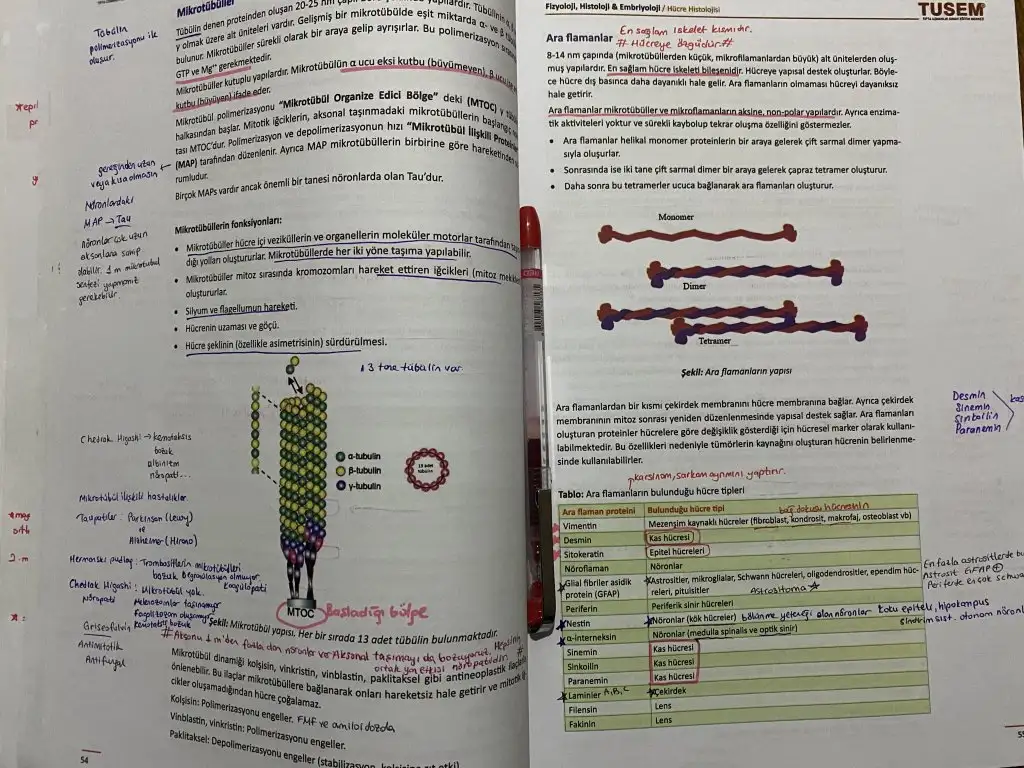 Mikrotübüller
Tübülin denen proteinden oluşan 20-25 nm
y olmak üzere alt üniteleri vardır. Gelişmiş bir mikrotübülde eşit miktarda α- ve β
bulunur. Mikrotübüller sürekli olarak bir araya gelip ayrışırlar. Bu polimerizasyon
GTP ve Mg⁺⁺ gerekmektedir.
Mikrotübüller kutuplu yapılardır. Mikrotübülün α ucu eksi kutbu (büyümeyen), β ucu
kutbu (büyüyen) ifade eder.
Mikrotübül polimerizasyonu "Mikrotübül Organize Edici Bölge" deki (MTOC) γ
halkasından başlar. Mitotik iğciklerin, aksonal taşınmadaki mikrotübüllerin başlangıç
tası MTOC'dur. Polimerizasyon ve depolimerizasyonun hızı "Mikrotübül İlişkili
(MAP) tarafından düzenlenir. Ayrıca MAP mikrotübüllerin birbirine göre hareketinden
rumludur.
Birçok MAPs vardır ancak önemli bir tanesi nöronlarda olan Tau'dur.
Tübülin
polimerizasyonu ile
oluşur.
gereğinden uzun
veya kısa olmasın
Nöronlardaki
MAP → Tau
nöronlar çok uzun
aksonlara sahip
olabilir. 1 m mikrotübül
sentezi yapmamız
gerekebilir.
Mikrotübüllerin fonksiyonları:
• Mikrotübüller hücre içi veziküllerin ve organellerin moleküler motorlar tarafından
dığı yolları oluştururlar. Mikrotübüllerde her iki yöne taşıma yapılabilir.
• Mikrotübüller mitoz sırasında kromozomları hareket ettiren iğcikleri (mitoz
oluştururlar.
• Silyum ve flagellumun hareketi.
• Hücrenin uzaması ve göçü.
• Hücre şeklinin (özellikle asimetrisinin) sürdürülmesi.
13 tane tübülin var.
α-tubulin
β-tubulin
γ-tubulin
13 adet
tubulin
MTOC
Başladığı bölge
Chediak Higashi → kemotaksis
bozuk
albinizm
nöropati...
Mikrotübül ilişkili hastalıklar
Taupatiler: Parkinson (Lewy)
ve
Alzheimer (Hirano)
Hermanski pudlag: Trombositlerin mikrotübülleri
bozuk Degranülasyon olmuyor
Koagülopati
Chediak Higashi: Mikrotübül yok.
Nöropati
Melanozomlar taşınamıyor
Fagolizozom oluşamıyor
Kemotaksis bozuk
Griseofulvin
Antimitotik
Antifungal
Şekil: Mikrotübül yapısı. Her bir sırada 13 adet tübülin bulunmaktadır.
# Aksonu 1 m'den fazla olan nöronlar var Aksonal taşımayı da bozuyoruz. Hepsinin
ortak yan etkisi nöropatidir. #
Mikrotübül dinamiği kolşisin, vinkristin, vinblastin, paklitaksel gibi antineoplastik ilaçlarla
önlenebilir. Bu ilaçlar mikrotübüllere bağlanarak onları hareketsiz hale getirir ve mitotik
cikler oluşamadığından hücre çoğalamaz.
Kolşisin: Polimerizasyonu engeller. FMF ve amiloidozda
Vinblastin, vinkristin: Polimerizasyonu engeller.
Paklitaksel: Depolimerizasyonu engeller (stabilizasyon,
54
Fizyoloji, Histoloji & Embriyoloji / Hücre Histolojisi
TUSEM
Ara flamanlar
En sağlam iskelet kısmıdır.
# Hücreye özgüdür. #
8-14 nm çapında (mikrotübüllerden küçük, mikrofilamanlardan büyük) alt ünitelerden oluş-
muş yapılardır. En sağlam hücre iskeleti bileşenidir. Hücreye yapısal destek oluştururlar. Böyle-
ce hücre dış basınca daha dayanıklı hale gelir. Ara flamanların olmaması hücreyi dayanıksız
hale getirir.
Ara flamanlar mikrotübüller ve mikroflamanların aksine, non-polar yapılardır. Ayrıca enzima-
tik aktiviteleri yoktur ve sürekli kaybolup tekrar oluşma özelliğini göstermezler.
• Ara flamanlar helikal monomer proteinlerin bir araya gelerek çift sarmal dimer yapma-
sıyla oluşurlar.
• Sonrasında ise iki tane çift sarmal dimer bir araya gelerek çapraz tetramer oluşturur.
• Daha sonra bu tetramerler ucuca bağlanarak ara flamanları oluşturur.
Monomer
Dimer
Tetramer
Şekil: Ara flamanların yapısı
Ara flamanlardan bir kısmı çekirdek membranını hücre membranına bağlar. Ayrıca çekirdek
membranının mitoz sonrası yeniden düzenlenmesinde yapısal destek sağlar. Ara flamanları
oluşturan proteinler hücrelere göre değişiklik gösterdiği için hücresel marker olarak kullanı-
labilmektedir. Bu özellikleri nedeniyle tümörlerin kaynağını oluşturan hücrenin belirlenme-
sinde kullanılabilirler.
Desmin
Sinemin
Sinkoilin
Paranemin
karsinom, sarkom ayrımını yaptırır.
Tablo: Ara flamanların bulunduğu hücre tipleri
Ara flaman proteini Bulunduğu hücre tipi bağ dokusu hücresinin
Vimentin Mezenşim kaynaklı hücreler (fibroblast, kondrosit, makrofaj, osteoblast vb)
Desmin Kas hücresi
Sitokeratin Epitel hücreleri
Nöroflaman Nöronlar
Glial fibriler asidik protein (GFAP) Astrositler, mikroglialar, Schwann hücreleri, oligodendrositler, ependim hüc-
releri, pituisitler Astrositoma
Periferin Periferik sinir hücreleri
Nestin Nöronlar (kök hücreler) bölünme yeteneği olan nöronlar koku epiteli, hipokampus
sindirim sist. otonom nöronl
α-interneksin Nöronlar (medulla spinalis ve optik sinir)
Sinemin Kas hücresi
Sinkoilin Kas hücresi
Paranemin Kas hücresi
Laminler A, B, C Çekirdek
Filensin Lens
Fakinin Lens
En fazla astrositlerde bu
Astrosit GFAP ⊕
Periferde en çok schwa